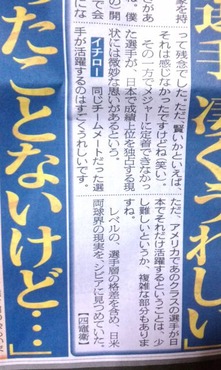 凄くうれしい
って残念でした。ただ、賢いかといえば、
それは感じなかったですけどね(笑い)。
その一方でメジャーに定着できなかっ
た選手が、日本で成績上位を独占する現
状には微妙な思いがあるという。
イチロー 同じチームメートだった選
手が活躍するのはすごくうれしいです。
ただ、アメリカであのクラスの選手が日
本でそれだけ活躍するということは、少
し難しいというか、複雑な部分もありま
すね。
レベルの、選手層の格差を含め、日米
両球界の現実を、シビアに見つめていた。
【四竈衛】
ったことないけど…